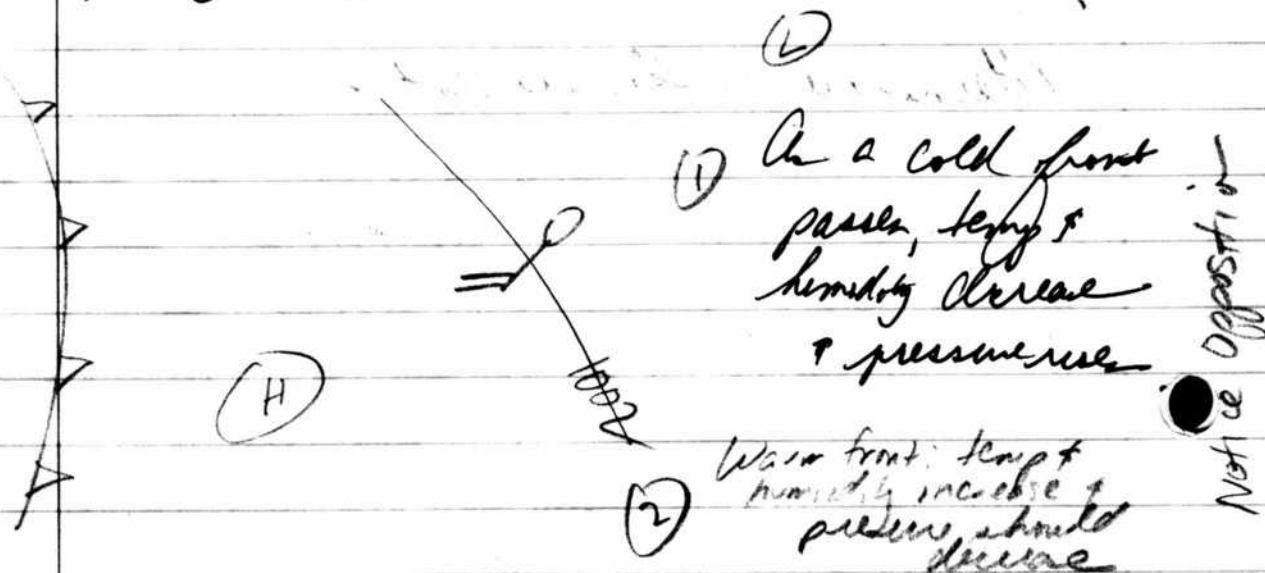 L
① As a cold front
passes, temp &
humidity decrease
& pressure rises
H
1002
② Warm front: temp &
humidity increase &
pressure should
decrease
Notice Opposition